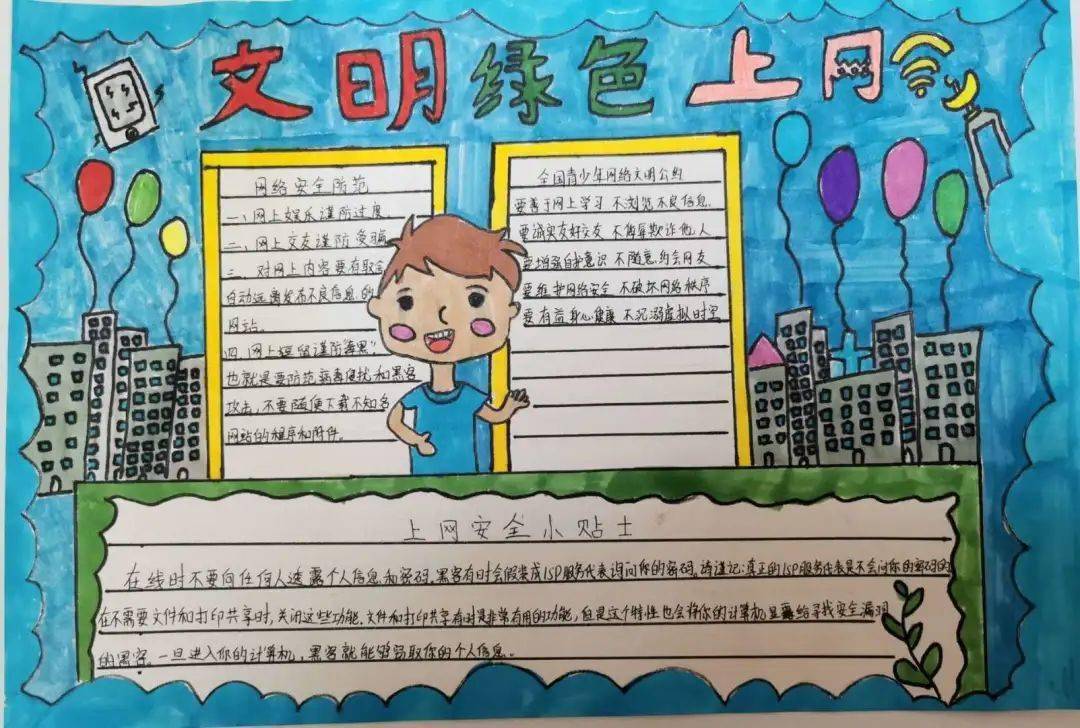 文明绿色上网
网络安全防范
一、网上娱乐谨防过度.
二、网上交友谨防受骗
三、对网上内容要有取舍
自动远离发布不良信息的
网站.
四、网上逗留谨防"黑".
也就是要防范病毒侵扰和黑客
攻击,不要随便下载不知名
网站的程序和附件。
全国青少年网络文明公约
要善于网上学习 不浏览不良信息.
要诚实友好交友 不侮辱欺诈他人
要增强自我意识 不随意约会网友
要维护网络安全 不破坏网络秩序
要有益身心健康 不沉溺虚拟时空
上网安全小贴士
在线时不要向任何人透露个人信息和密码.黑客有时会假装成ISP服务代表询问你的密码。请谨记:真正的ISP服务代表是不会问你的密码的
在不需要文件和打印共享时,关闭这些功能.文件和打印共享有时是非常有用的功能,但是这个特性也会将你的计算机暴露给寻找安全漏洞
的黑客。一旦进入你的计算机,黑客就能够窃取你的个人信息。